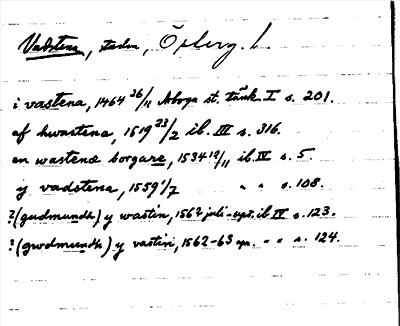 Vadstena, stad, Österg. l.
i vastena, 1464 26/11 Åboga st. tänk. I s. 201.
af hwastena, 1519 23/2 ib. III s. 316.
en wastenæ borgare, 1534 12/11 ib. IV s. 5.
ij vadstena, 1559 1/7 " " s. 108.
?(gudmundh) y wastin, 1562 juli-apr. ib IV s. 123.
?(gwdmundh) y vastin, 1562-63 " " s. 124.